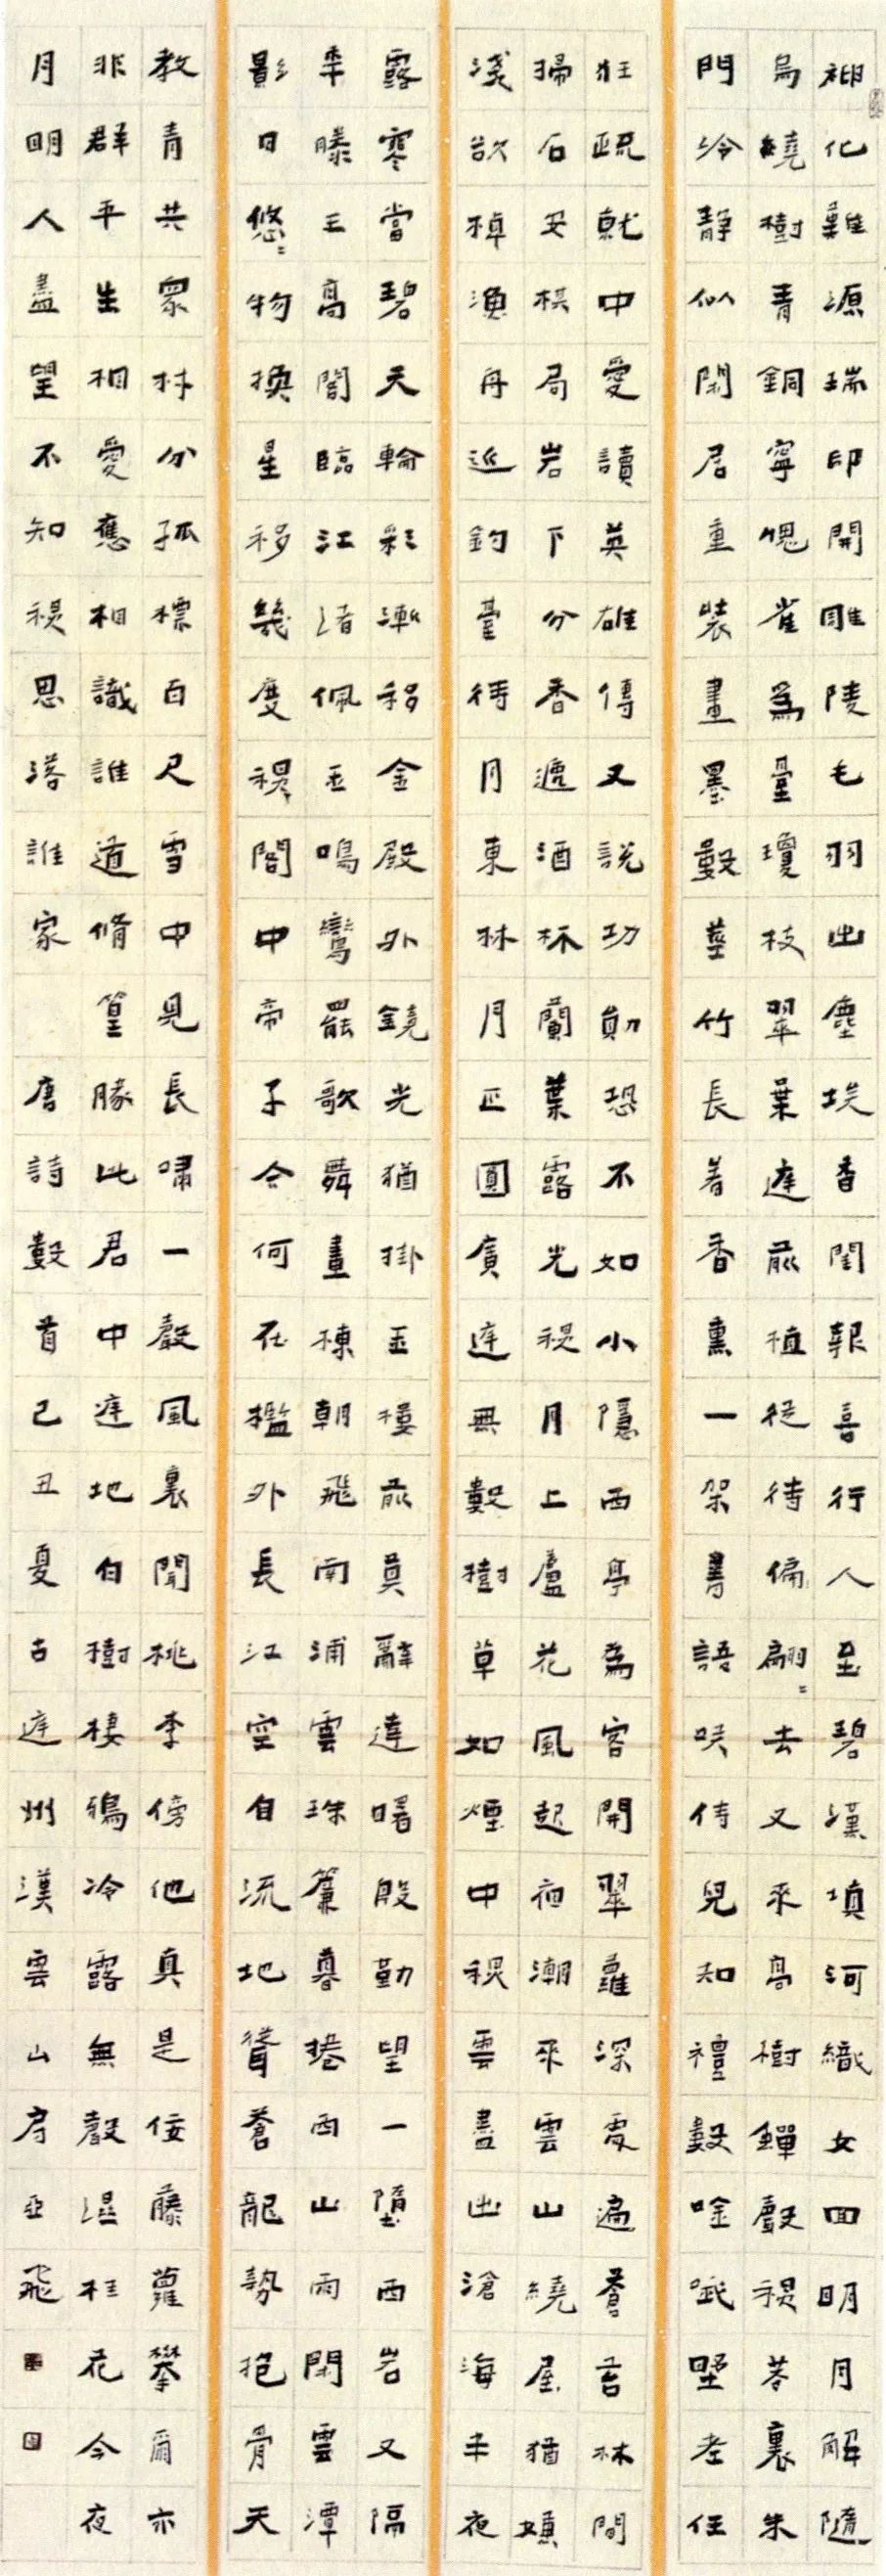 神化難源瑞印開雕陵毛羽出塵埃香閨報喜行人至碧漢填河織女回明月解隨
烏繞樹青銅寧愧雀為臺瓊枝翠葉庭前植從待偏翩〻去又來高樹蟬聲秋巷裏朱
門冷靜似閑居重裝畫墨數莖竹長著香熏一架書語咲侍兒知禮數吟哦野老任
狂疏就中愛讀英雄傳又說功勛恐不如小隱西亭為客開翠蘿深處遍蒼苔林間
掃石安棋局岩下分香遞酒杯蘭葉露光秋月上蘆花風起夜潮來雲山繞屋猶嫌
淺欲棹漁舟近釣臺待月東林月正圓廣庭無數樹草如煙中秋雲盡出滄海半夜
露寒當碧天輪彩漸移金殿外鏡光猶掛玉樓前莫辭達曙殷勤望一墮西岩又隔
年滕王高閣臨江渚佩玉鳴鸞罷歌舞畫棟朝飛南浦雲珠簾暮捲西山雨閑雲潭
影日悠〻物換星移幾度秋閣中帝子今何在檻外長江空自流地聳蒼龍勢抱骨天
教青共衆材分孤標百尺雪中見長嘯一聲風裏聞桃李傍他真是佞藤蘿攀爾亦
非群平生相愛應相識誰道脩篁勝此君中庭地白樹棲鴉冷露無聲濕桂花今夜
月明人盡望不知秋思落誰家 唐詩數首己丑夏古庭州漢雲山房亞飛